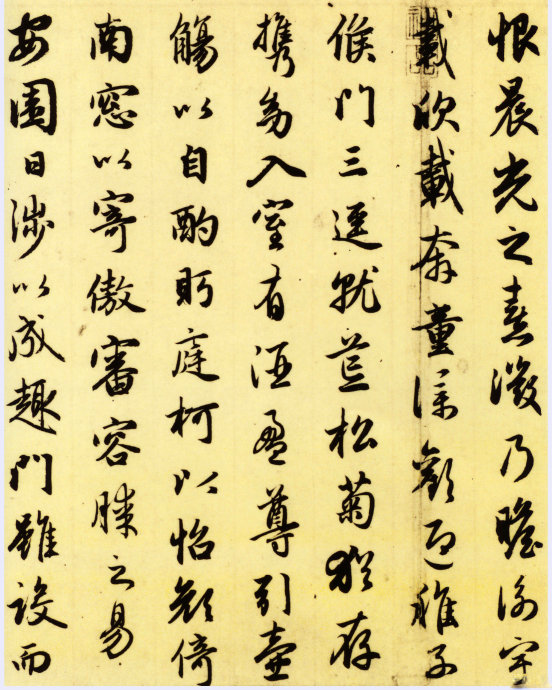 恨晨光之熹微乃瞻衡宇
載欣載奔童僕歡迎稚子
候門三逕就荒松菊猶存
攜幼入室有酒盈尊引壺
觴以自酌眄庭柯以怡顏倚
南窓以寄傲審容膝之易
安園日涉以成趣門雖設而